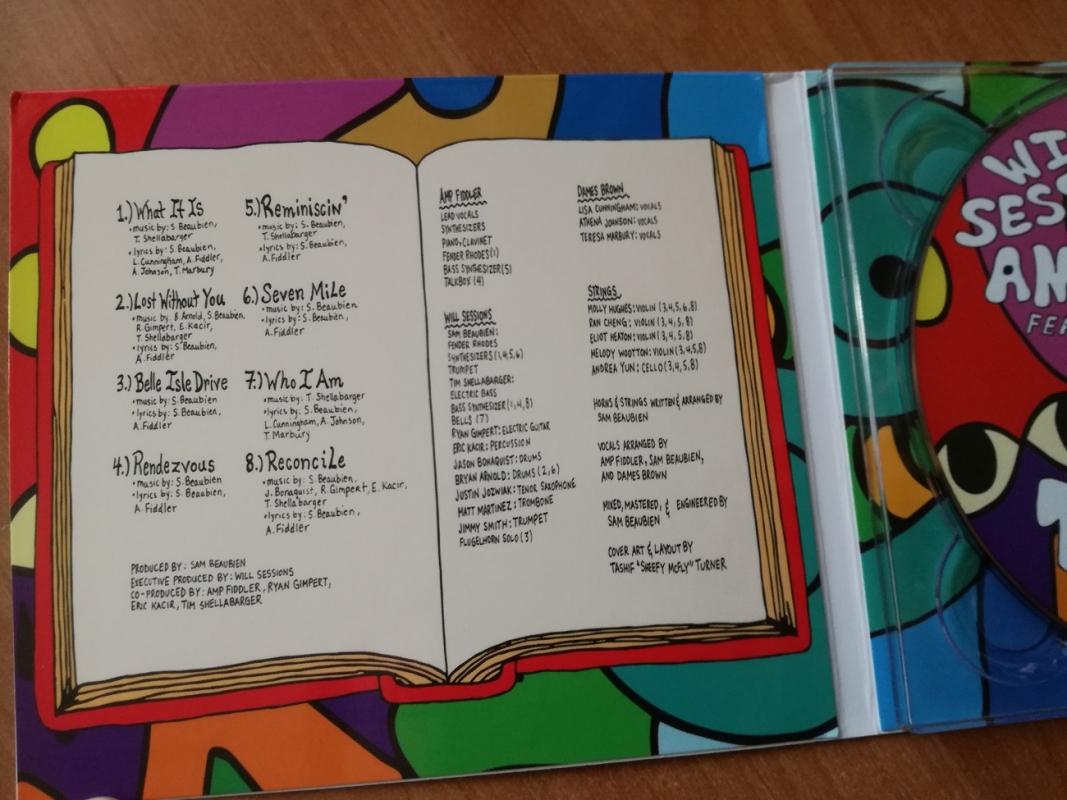 1.) What It Is
• music by: S. Beaubien,
T. Shellabarger
• lyrics by: S. Beaubien,
L. Cunningham, A. Fiddler,
A. Johnson, T. Marbury
2.) Lost Without You
• music by: B Arnold, S. Beaubien,
R. Gimpert, E. Kacir,
T. Shellabarger
• lyrics by: S. Beaubien,
A. Fiddler
3.) Belle Isle Drive
• music by: S. Beaubien
• lyrics by: S. Beaubien,
A. Fiddler
4.) Rendezvous
• music by: S. Beaubien
• lyrics by: S. Beaubien,
A. Fiddler
5.) Reminiscin'
• music by: S. Beaubien,
T. Shellabarger
• lyrics by: S. Beaubien,
A. Fiddler
6.) Seven Mile
• music by: S. Beaubien
• lyrics by: S. Beaubien,
A. Fiddler
7.) Who I Am
• music by: T. Shellabarger
• lyrics by: S. Beaubien,
L. Cunningham, A. Johnson,
T. Marbury
8.) Reconcile
• music by: S. Beaubien,
J. Bonaquist, R. Gimpert, E. Kacir,
T. Shellabarger
• lyrics by: S. Beaubien,
A. Fiddler
PRODUCED BY: SAM BEAUBIEN
EXECUTIVE PRODUCED BY: WILL SESSIONS
CO-PRODUCED BY: AMP FIDDLER, RYAN GIMPERT,
ERIC KACIR, TIM SHELLABARGER
AMP FIDDLER
LEAD VOCALS
SYNTHESIZERS
PIANO, CLAVINET
FENDER RHODES (1)
BASS SYNTHESIZER (5)
TALKBOX (4)
WILL SESSIONS
SAM BEAUBIEN:
FENDER RHODES
SYNTHESIZERS (1,4,5,6)
TRUMPET
TIM SHELLABARGER:
ELECTRIC BASS
BASS SYNTHESIZER (1,4,8)
BELLS (7)
RYAN GIMPERT: ELECTRIC GUITAR
ERIC KACIR: PERCUSSION
JASON BONAQUIST: DRUMS
BRYAN ARNOLD: DRUMS (2,6)
JUSTIN JOZWIAK: TENOR SAXOPHONE
MATT MARTINEZ: TROMBONE
JIMMY SMITH: TRUMPET
FLUGELHORN SOLO (3)
DAMES BROWN
LISA CUNNINGHAM: VOCALS
ATHENA JOHNSON: VOCALS
TERESA MARBURY: VOCALS
STRINGS
MOLLY HUGHES: VIOLIN (3,4,5,6,8)
RAN CHENG: VIOLIN (3,4,5,8)
ELIOT HEATON: VIOLIN (3,4,5,8)
MELODY WOOTTON: VIOLIN (3,4,5,8)
ANDREA YUN: CELLO (3,4,5,8)
HORNS & STRINGS WRITTEN & ARRANGED BY
SAM BEAUBIEN
VOCALS ARRANGED BY
AMP FIDDLER, SAM BEAUBIEN,
AND DAMES BROWN
MIXED, MASTERED, & ENGINEERED BY
SAM BEAUBIEN
COVER ART & LAYOUT BY
TASHIF "SHEEFY MCFLY" TURNER
WI
SES
AN
FEA